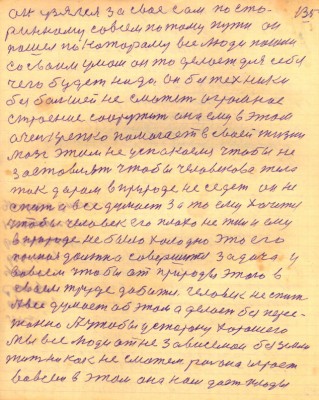 135
он узялся за свае сам по сто-
ринному совсем по тому пути он
пошел по каторому все люди пошли
со своим умом он то делает для себя
чего будет надо он без техники
без большей не сможет огромное
строение сооружит она ему в этом
очень крепко помогает в своей жизни
мозг этим не успакоем чтобы не
заставлят чтобы человекова тело
так даром в природе не седел он не
спит а все думает за то ему хочится
чтобы человек его плохо не жил и ему
в природе не было холодно это его
полная должна совершится задача у
вовсем чтобы от природы этого в
своем труде добится человек не спит
а все думает об этом а делает без перес-
танно
мы все люди от не зависемой без
жит никак не сможем она играет
вовсем в этом она нам дает плоды